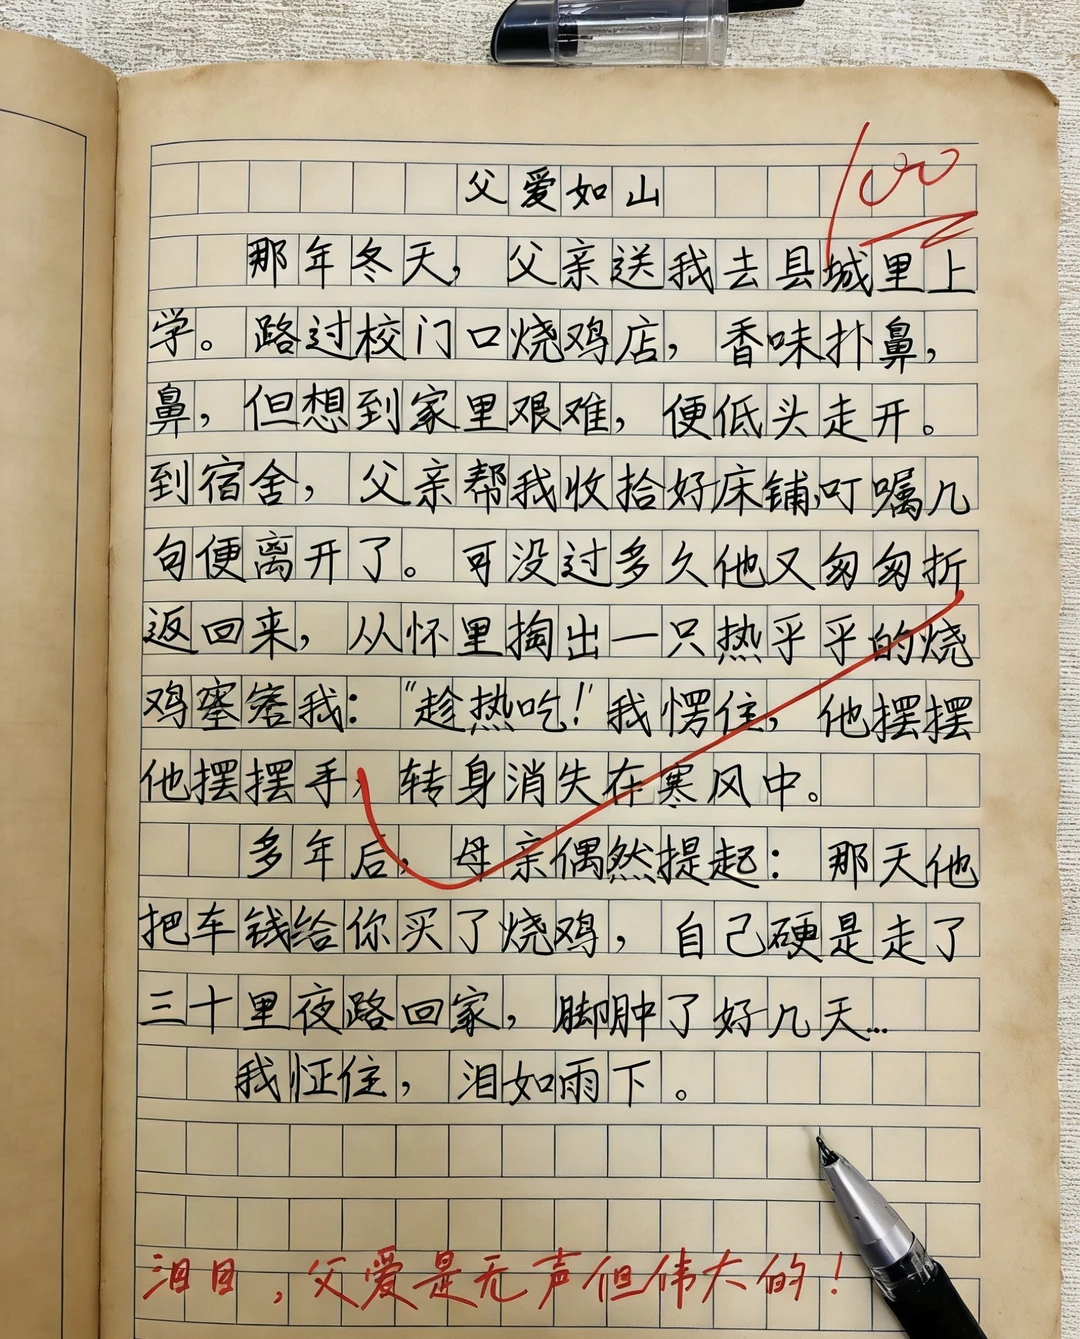 父爱如山
100
那年冬天，父亲送我去县城里上
学。路过校门口烧鸡店，香味扑鼻，
鼻，但想到家里艰难，便低头走开。
到宿舍，父亲帮我收拾好床铺，叮嘱几
句便离开了。可没过多久他又匆匆折
返回来，从怀里掏出一只热乎乎的烧
鸡我：“趁热吃！”我愣住，他摆摆
他摆摆手，转身消失在寒风中。
多年后，母亲偶然提起：那天他
把车钱给你买了烧鸡，自己硬是走了
三十里夜路回家，脚肿了好几天…
我怔住，泪如雨下。
泪目，父爱是无声但伟大的！